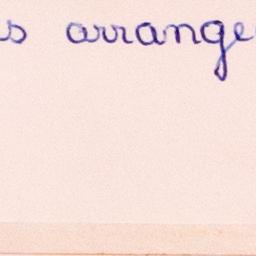 s arrange